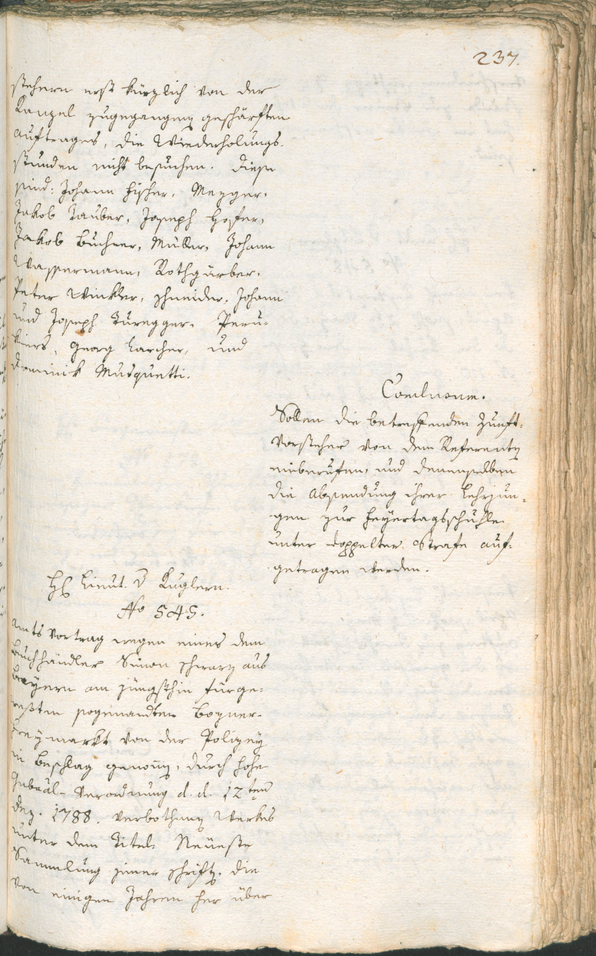 237.
stehern erst kürzlich von der
Kanzel zugegangenen geschärften
auftrages, die Wiederholungs-
stunden nicht besuchen. Diese
sind: Johann Fischer, Mezger.
Jakob Tauber, Joseph Hofer,
Jakob Büchner, Müller, Johann
Wassermann, Rothgärber.
Peter Winkler, schneider, Johann
und Joseph Türegger. Peru-
kiers, Georg Larcher, und
Dominik Musquetti.
Conclusum.
Sollen die betreffenden Zunft-
Vorsteher von dem Referenten
einberufen, und denenselben
die Absendung ihrer Lehrjun-
gen zur Feyertagsschuhle
unter doppelter Strafe auf-
getragen werden.
H Lieut. v Kuglern.
No 545.
Amts Vortrag wegen eines dem
Buchhändler Simon schwarz aus
Bayern am jüngsthin fürge-
sogenandten Bozner-
markt von der Polizey
in Beschlag genomen, durch hohe
Gubral-Verordnung d. d. 12ten
Dez. 1788. verbothenen Werkes
unter dem Titel: Neueste
Sammlung jener schriften, die
von einigen Jahren her über